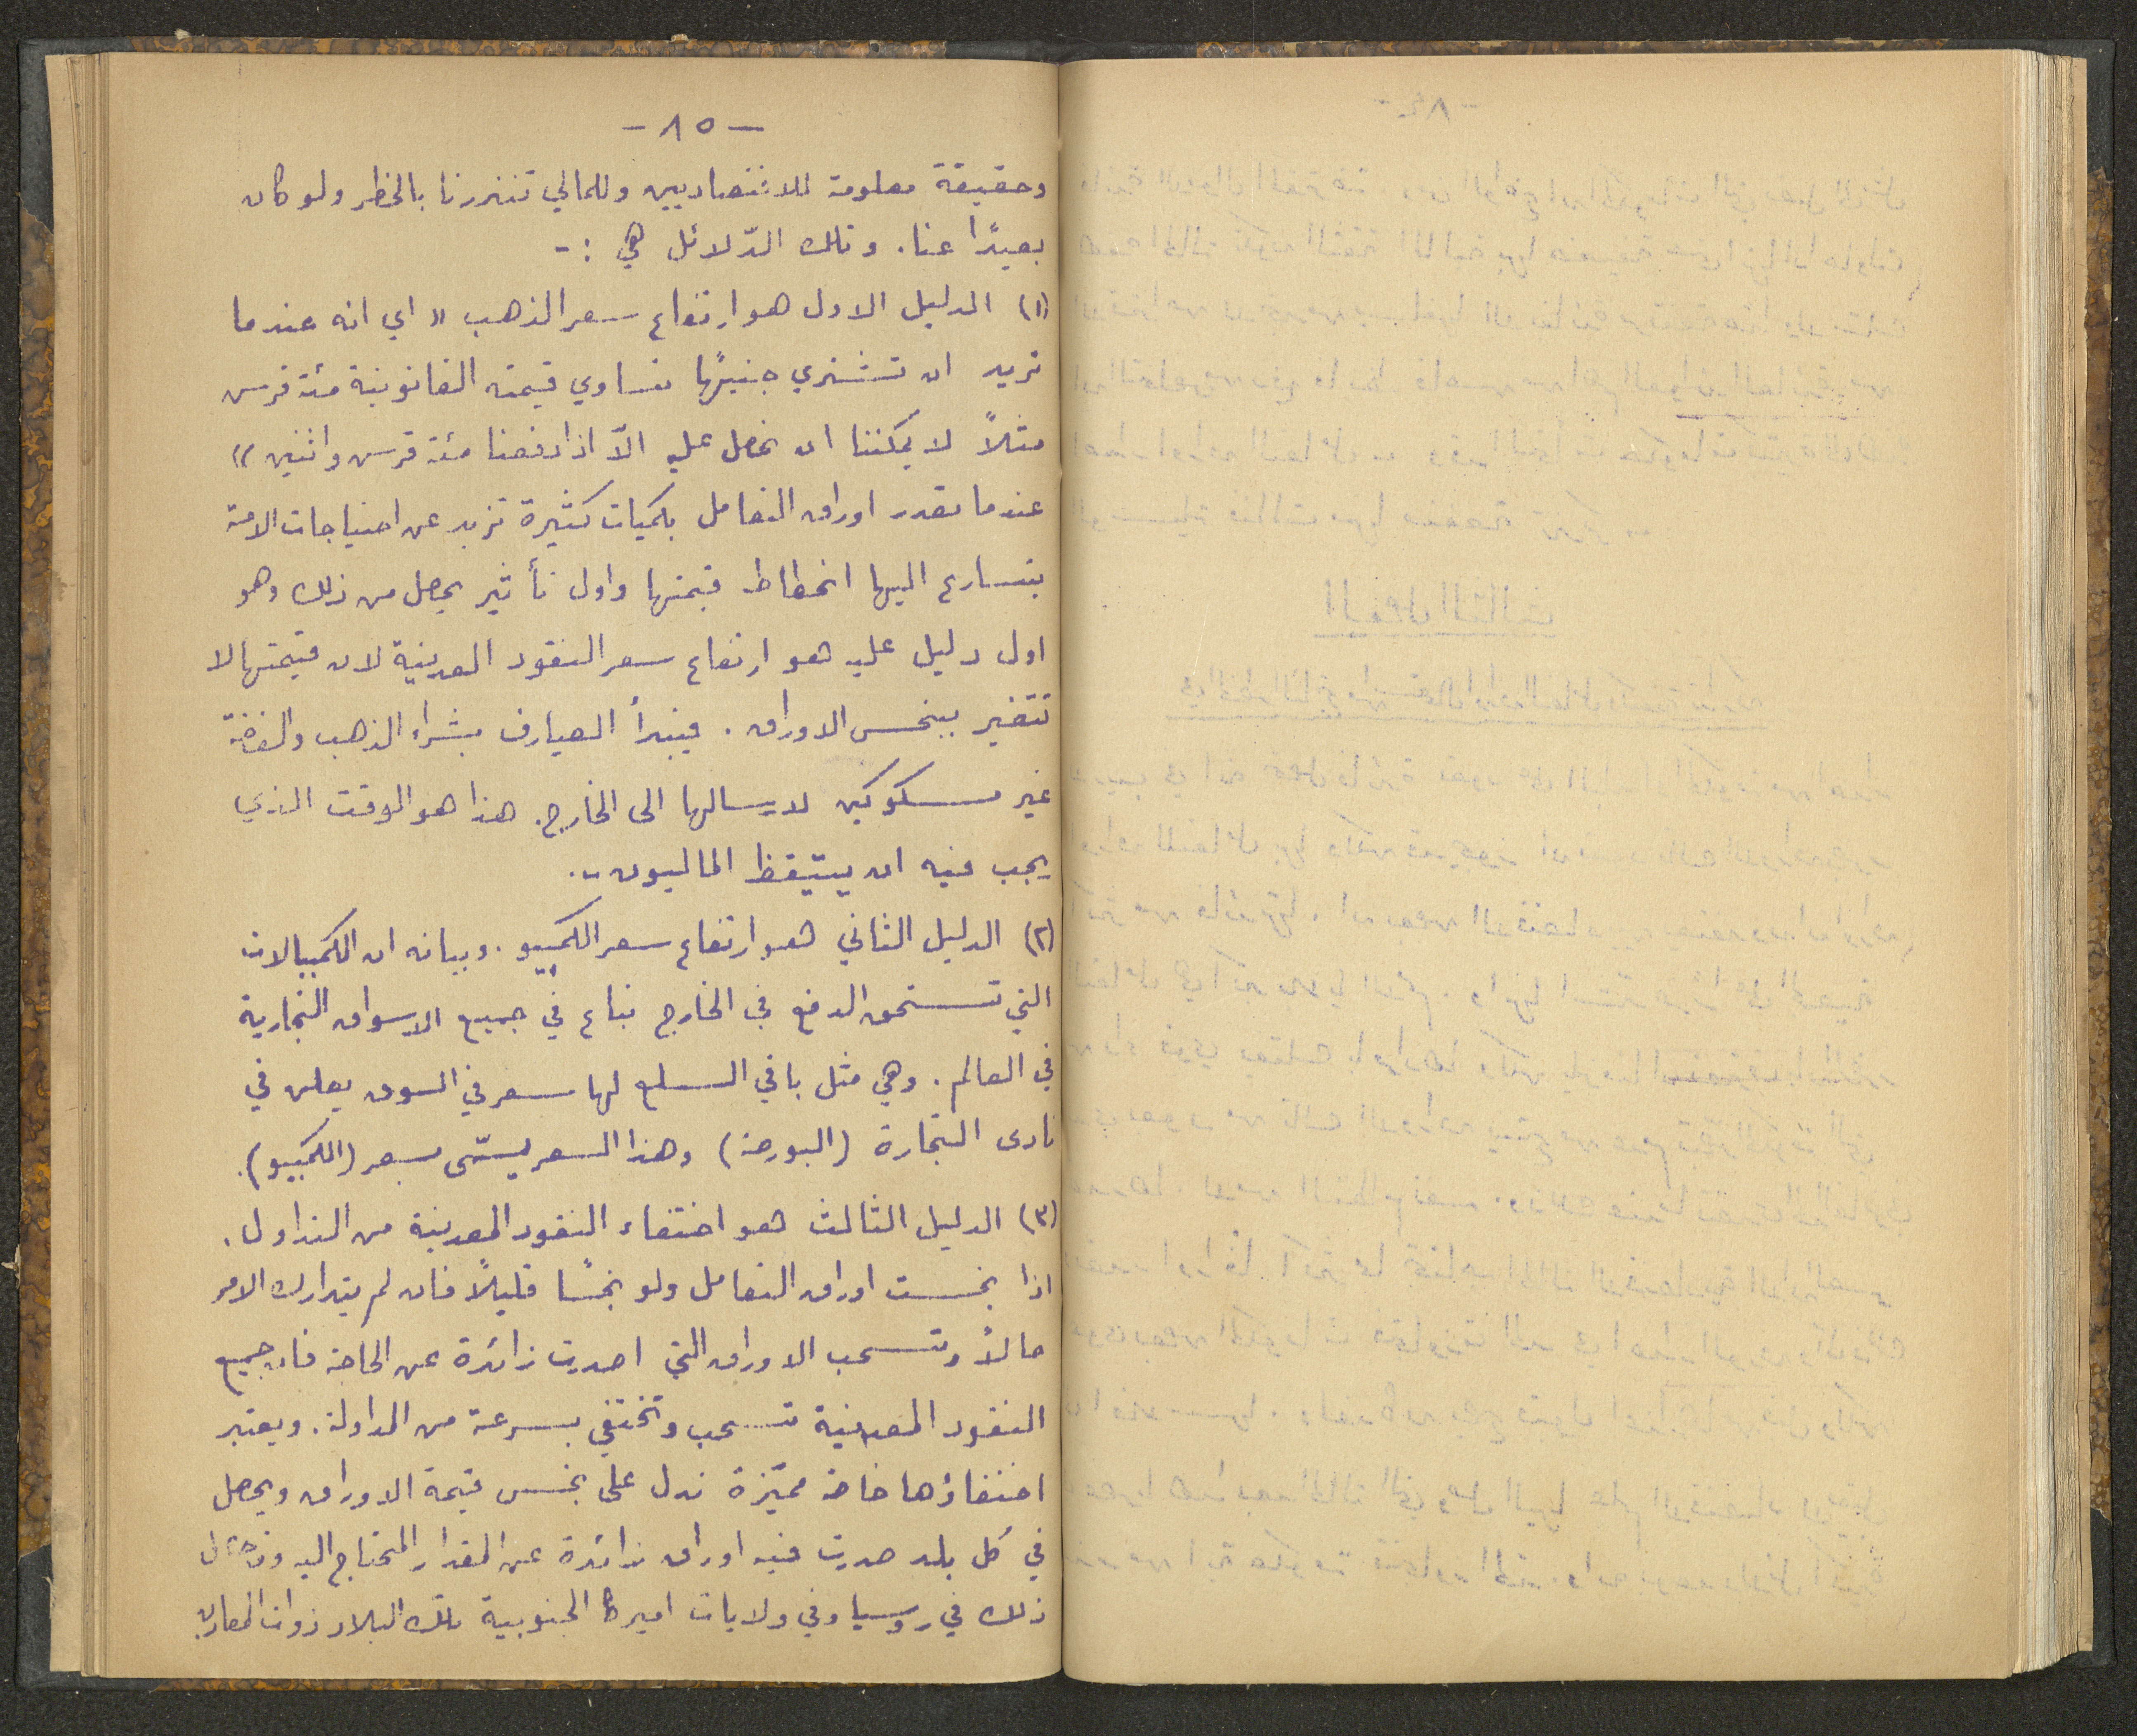 - ٨٥ -
وحقيقة معلومة للاقتصاديين وللمالي تنذرنا بالخطر ولو كان
بعيدًا عنا. وتلك الدّلائل هي :-
(١) الدليل الاول هو ارتفاع سعر الذهب « اي انه عندما
نريد ان نشتري جنيهًا تساوي قيمته القانونية مئة قرس
مثلاً لا يمكننا ان نحصل عليه الاّ اذا دفعنا مئة قرس واثنين »
عندما تصدر اوراق التعامل بكميات كثيرة تزيد عن احتياجات الامة
يتسارع اليها انحطاط قيمتها واول تأثير يحصل من ذلك وهو
اول دليل عليه هو ارتفاع سعر النقود المعدنية لان قيمتها لا
تتغير ببخس الاوراق. فيبدأ الصيارف بشراء الذهب والفضة
غير مسكوكين لارسالها الى الخارج. هذا هو الوقت الذي
يجب فيه ان يستيقظ الماليون..
(٢) الدليل الثاني هو ارتفاع سعر الكمبيو. وبيانه ان الكمبيالات
التي تستحق الدفع في الخارج تباع في جميع الاسواق التجارية
في العالم. وهي مثل باقي السلع لها سعر في السوق يعلن في
نادى التجارة (البورصة) وهذا السعر يسمّى بسعر (الكمبيو).
(٣) الدليل الثالث هو اختفاء النقود المعدنية من التداول.
اذا بخست اوراق التعامل ولو بخسًا قليلاً فان لم يتدارك الامر
حالاً وتسحب الاوراق التي اصدرت زائدة عن الحاجة فان جميع
النقود المعدنية تسحب وتختفي بسرعة من المداولة. ويعتبر
اختفاؤها خاصة مميّزة تدل على بخس قيمة الاوراق ويحصل
في كل بلد صدرت فيه اوراق زائدة عن المقدار المحتاج اليه
ذلك في روسيا وفي ولايات اميركا الجنوبية تلك البلاد ذوات المعادن